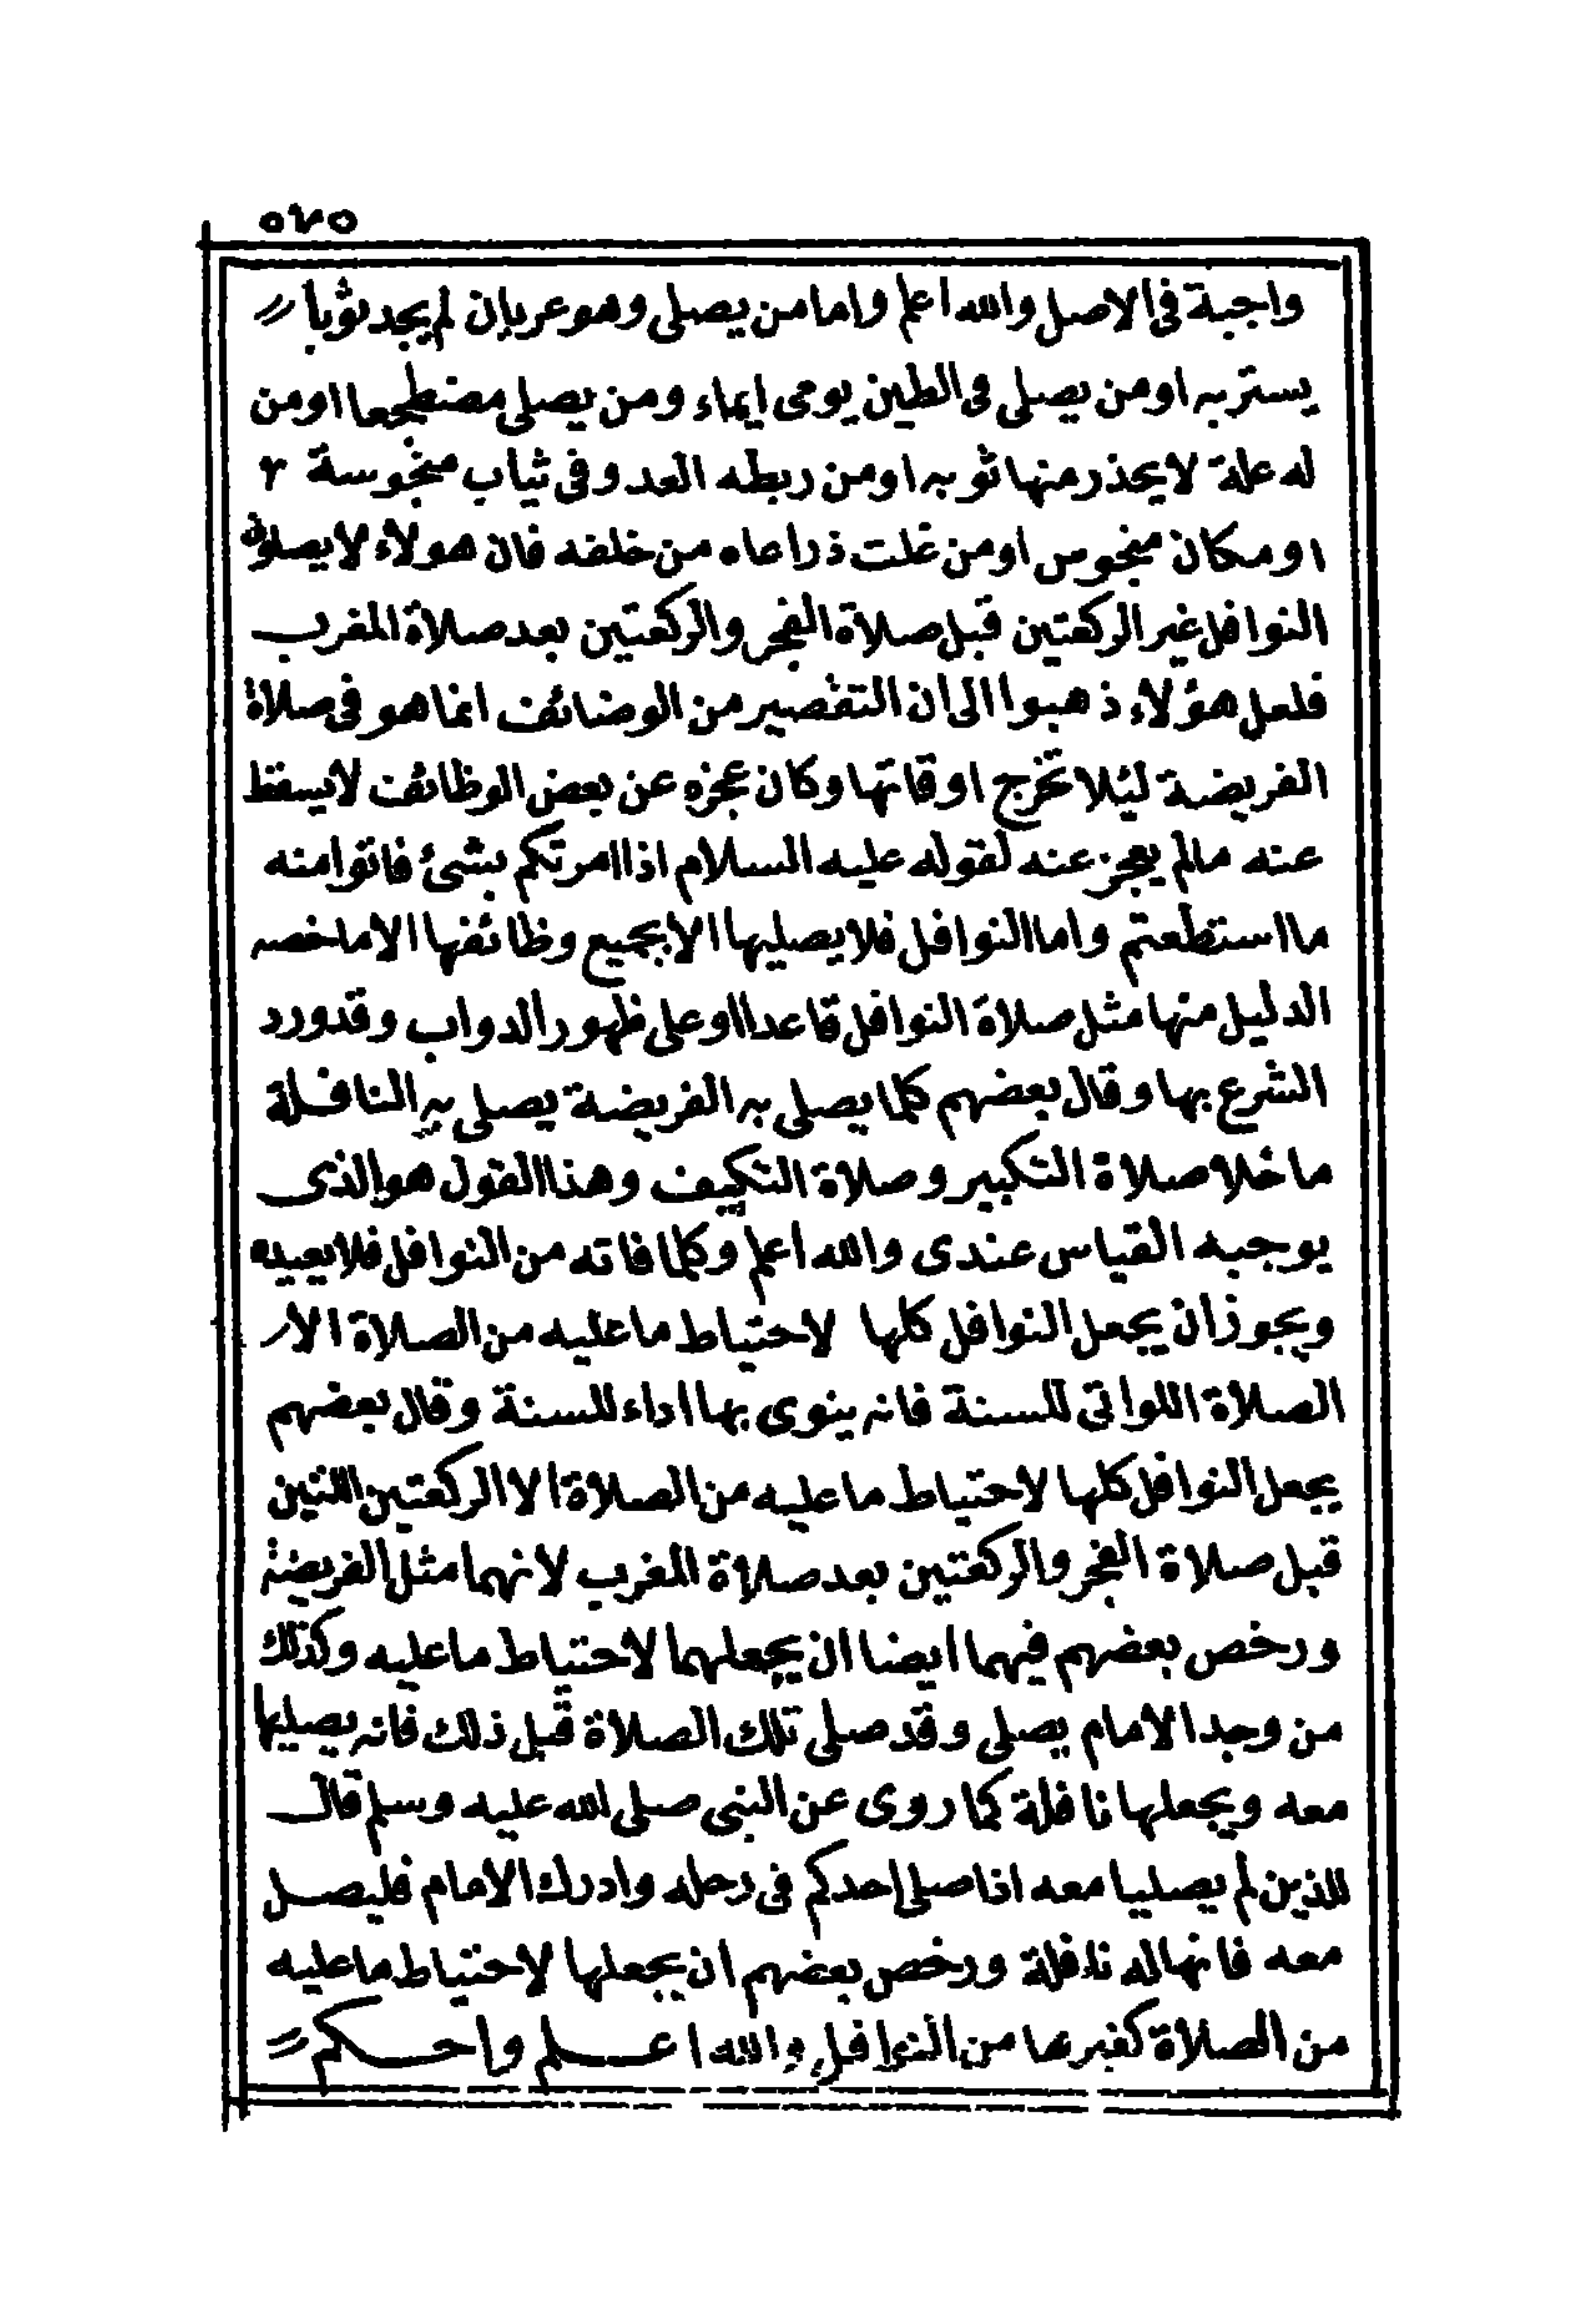 ٥٢٥
واجبة في الاصل والله اعلم واما من يصلى وهو عريان لم يجد ثوبا
يستتر به او من يصلى فى الطين يومى ايماء ومن يصلى مضطجعا او من
له علة لا يحذر منها ثوبه او من ربطه العدو فى ثياب منجوسة
او مكان منجوس او من غلت ذراعاه من خلفه فان هولاء لا يصلون
النوافل غير الركعتين قبل صلاة الفجر والركعتين بعد صلاة المغرب
فلعل هؤلاء ذهبوا الى ان التقصير من الوضائف انما هو فى صلاة
الفريضة ليئلا تخرج اوقاتها وكان عجزه عن بعض الوظائف لا يسقط
عنه مالم يعجز عنه لقوله عليه السلام اذا امرتكم بشئ فاتوا منه
ما استطعتم واما النوافل فلا يصليها الا بجميع وظائفها الا ما خصه
الدليل منها مثل صلاة النوافل قاعدا او على ظهور الدواب وقد ورد
الشرع بها وقال بعضهم كلما يصلى به الفريضة يصلى به النافلة
ما خلا صلاة التكبير وصلاة التكييف وهذا القول هو الذى
يوجبه القياس عندى والله اعلم وكلما فاته من النوافل فلا يعيده
ويجوز ان يجعل النوافل كلها لاحتياط ما عليه من الصلاة الا
الصلاة اللواتى للسنة فانه ينوى بها اداء للسنة وقال بعضهم
يجعل النوافل كلها لاحتياط ما عليه من الصلاة الا الركعتين اللتين
قبل صلاة الفجر والركعتين بعد صلاة المغرب لانهما مثل الفريضة
ورخص بعضهم فيهما ايضا ان يجعلهما لاحتياط ما عليه وكذلك
من وجد الامام يصلى وقد صلى تلك الصلاة قبل ذلك فانه يصليها
معه ويجعلها نافلة كما روى عن النبى صلى الله عليه وسلم قال
للذين لم يصليا معه اذا صلى احدكم فى رحله وادرك الامام فليصل
معه فانها له نافلة ورخص بعضهم ان يجعلها لاحتياط ما عليه
من الصلاة كغيرها من النوافل والله اعلم واحكم